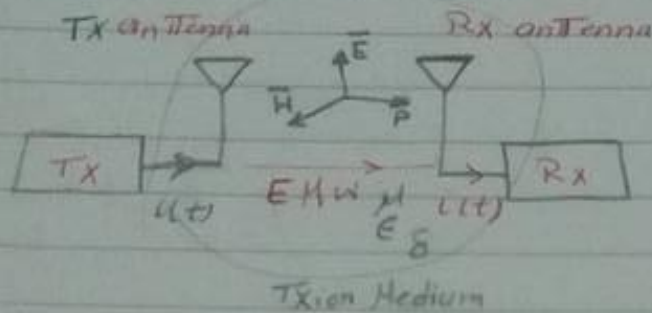 Tx antenna
Rx antenna
E
H
P
Tx
Rx
i(t)
EMW
μ
i(t)
ϵ
δ
Txion Medium